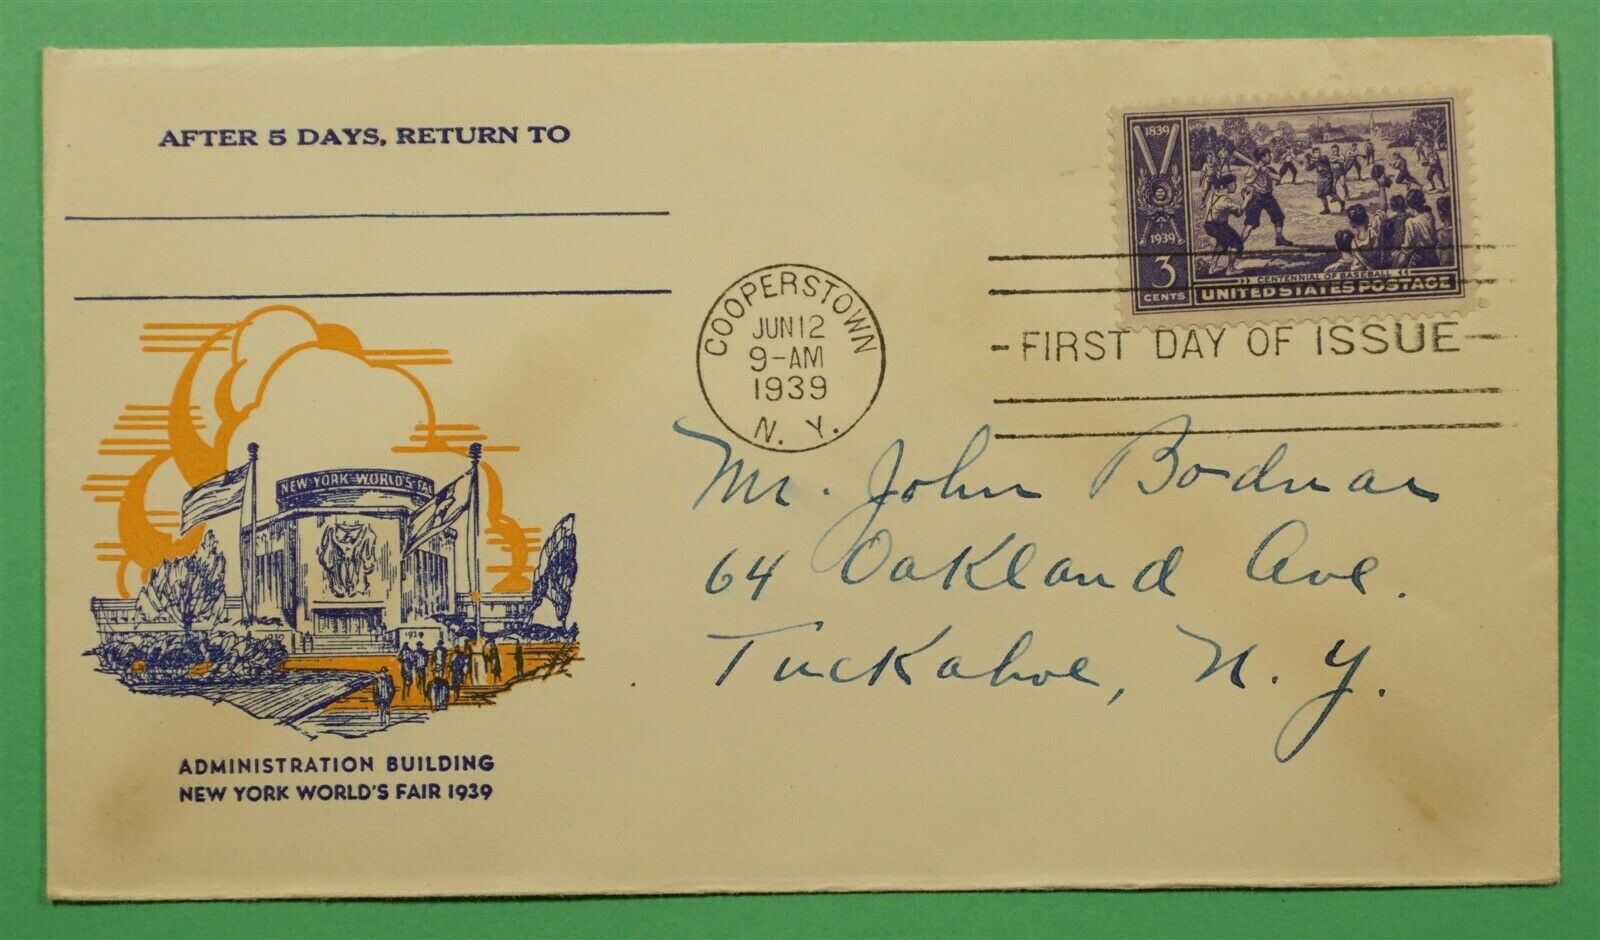 AFTER 5 DAYS, RETURN TO
1839
1939
3
CENTS
CENTENNIAL OF BASEBALL
UNITED STATES POSTAGE
COOPERSTOWN
JUN 12
9-AM
1939
N. Y.
-FIRST DAY OF ISSUE-
NEW YORK WORLD'S FA
1939
Mr. John Bodnar
64 Oakland Ave.
Tuckahoe, N. Y.
ADMINISTRATION BUILDING
NEW YORK WORLD'S FAIR 1939